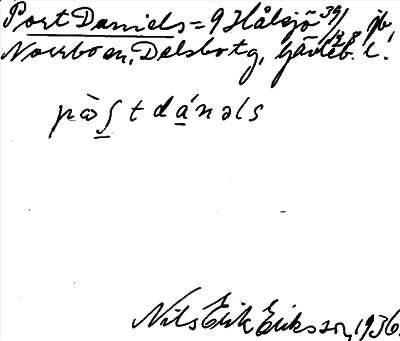 Port Daniels = 9 Hålsjö 39/128 jb,
Norrboan, Delsbo tg, Gävleb. l.
pɷ̀ʃtdánəls
Nils Erik Eriksson, 1936.